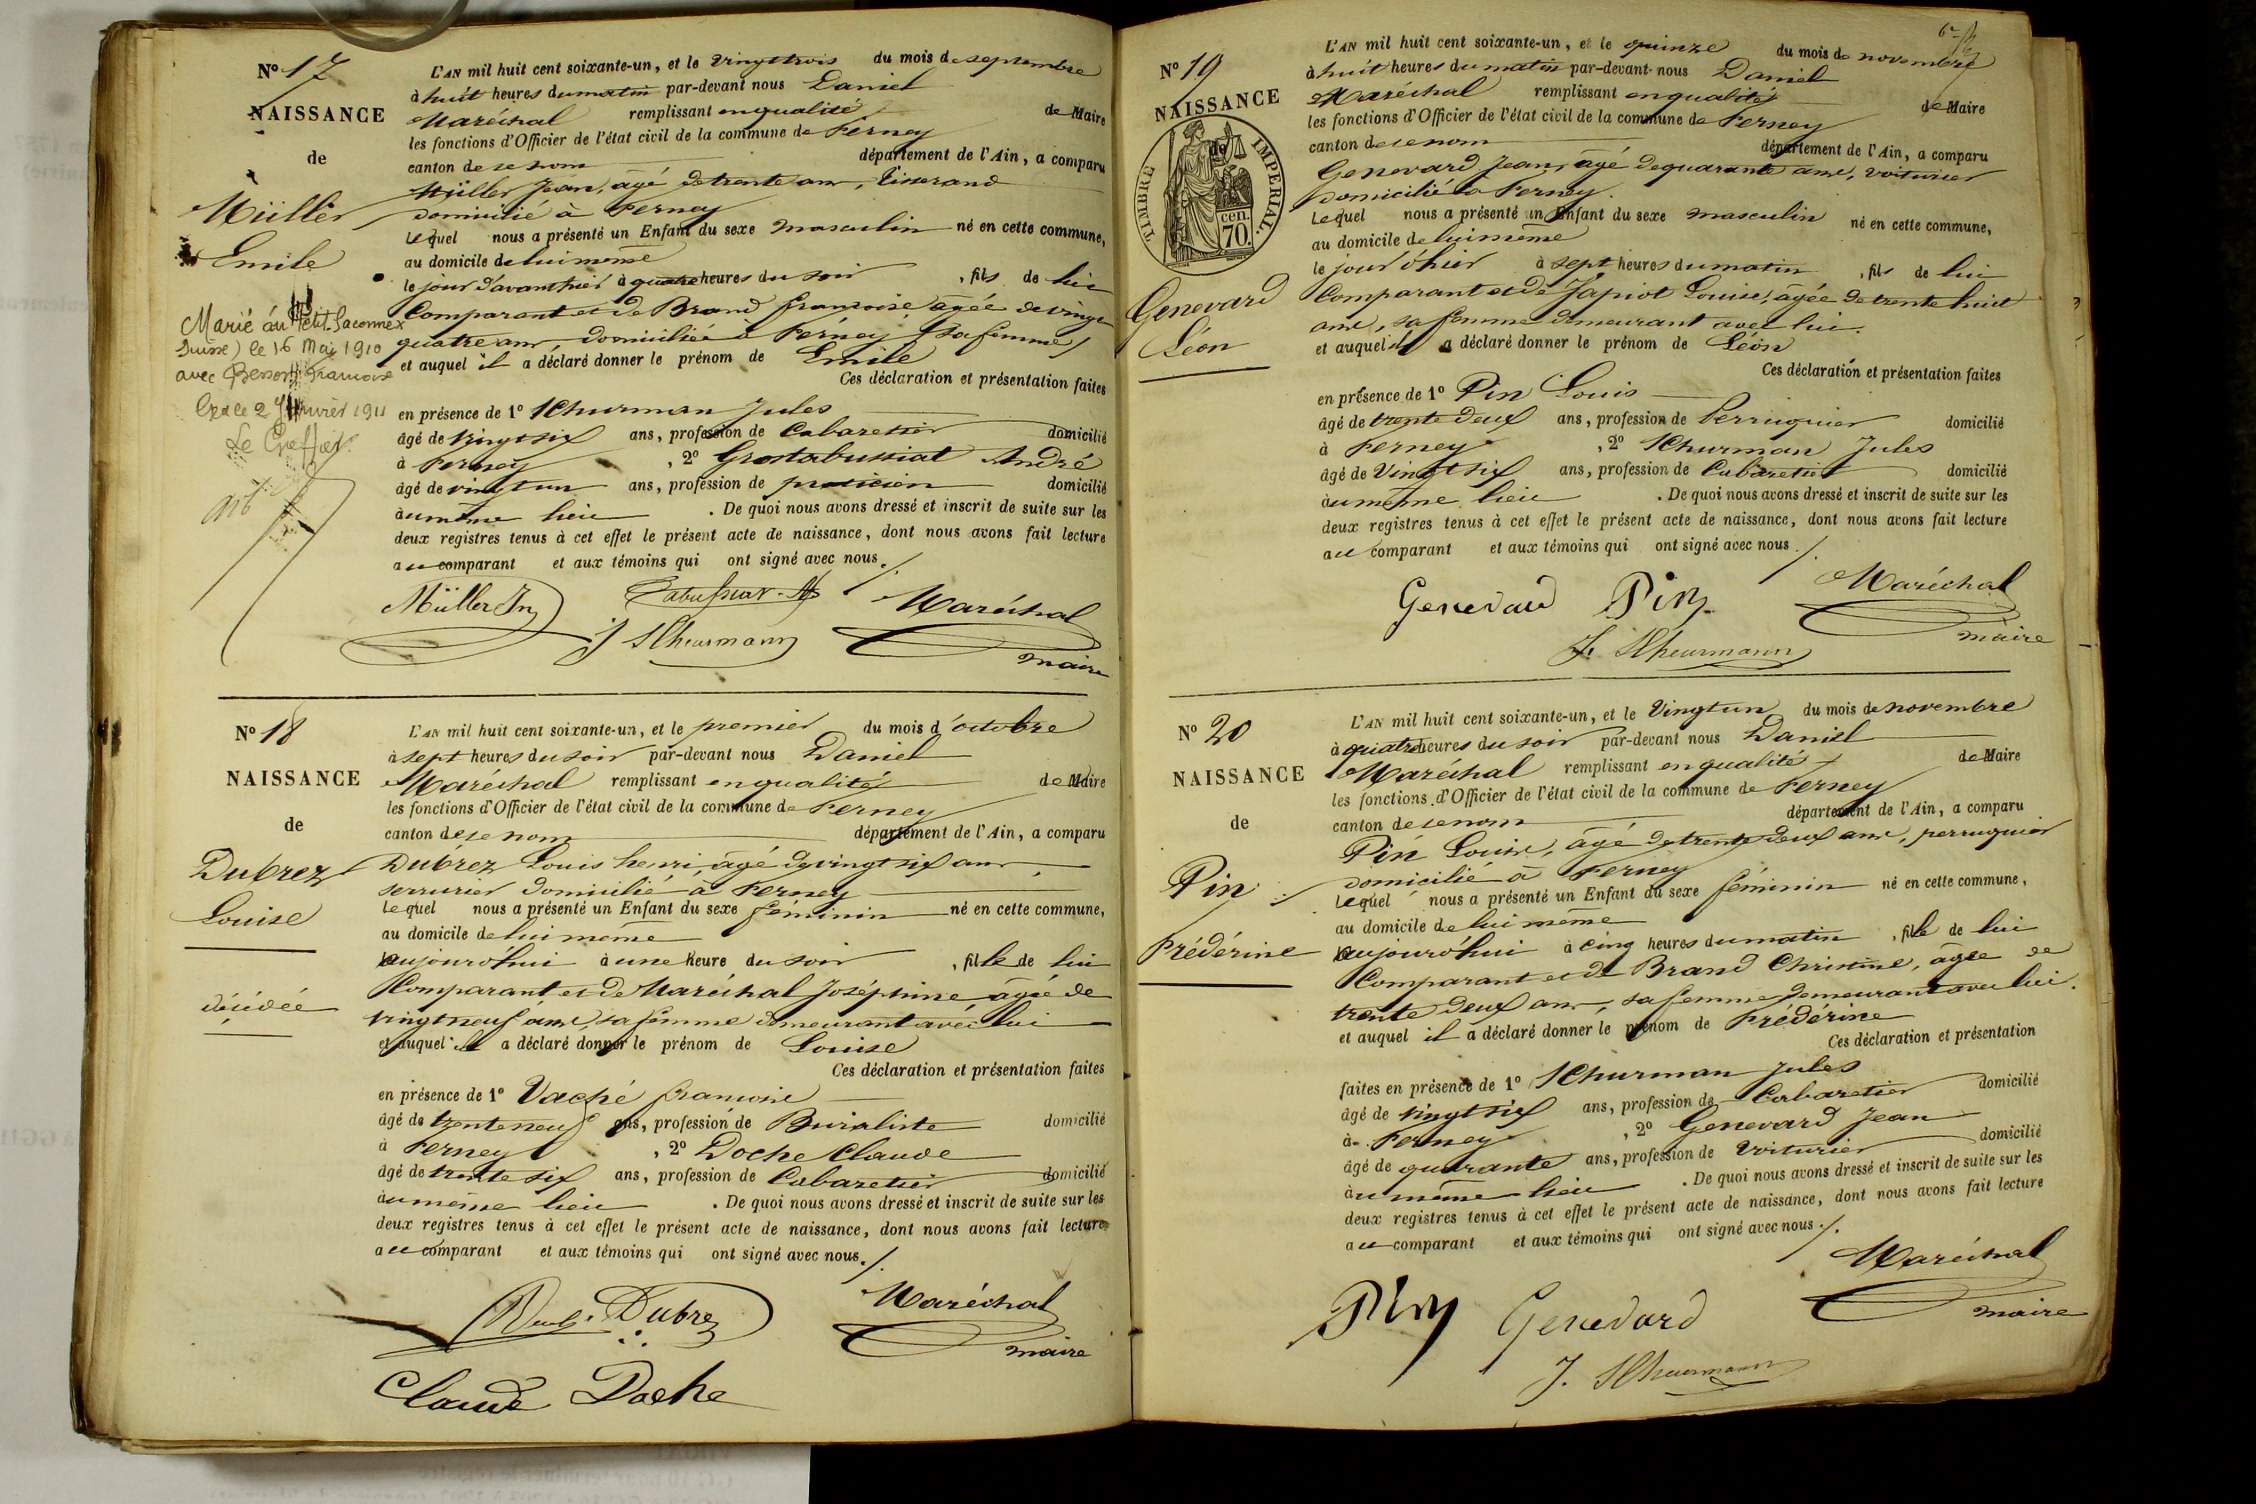 Nº 17
NAISSANCE
de
Müller
Emile
Marié au Petit-Saconnex
Suisse) le 16 Mai 1910
avec
Le Greffier
L'AN mil huit cent soixante-un, et le vingttrois du mois de septembre
à huit heures du matin par-devant nous Daniel
Maréchal remplissant en qualité de Maire
les fonctions d'Officier de l'état civil de la commune de Ferney
canton de ce nom département de l'Ain, a comparu
Müller Jean, âgé de trente ans, Tisserand
domicilié à Ferney
Lequel nous a présenté un Enfant du sexe masculin né en cette commune,
au domicile de lui même
le jour d'avanthier à quatre heures du soir, fils de lui
Comparant et de Brand françoise, âgée de vingt
quatre ans domiciliée à Ferney, sa femme
et auquel il a déclaré donner le prénom de Emile
Ces déclaration et présentation faites
en présence de 1º Schurman Jules
âgé de vingt six ans, profession de Cabaretier domicilié
à Ferney, 2º Grostabussiat André
âgé de vingt un ans, profession de praticien domicilié
au même lieu. De quoi nous avons dressé et inscrit de suite sur les
deux registres tenus à cet effet le présent acte de naissance, dont nous avons fait lecture
au comparant et aux témoins qui ont signé avec nous./.
Müller Jn Tabussiat Maréchal
J Scheurmann maire
Nº 18
NAISSANCE
de
Dubrez
Louise
décédée
L'AN mil huit cent soixante-un, et le premier du mois d'octobre
à sept heures du soir par-devant nous Daniel
Maréchal remplissant en qualité de Maire
les fonctions d'Officier de l'état civil de la commune de Ferney
canton de ce nom département de l'Ain, a comparu
Dubrez Louis henri, âgé de vingt six ans,
serrurier domicilié à Ferney
Lequel nous a présenté un Enfant du sexe féminin né en cette commune,
au domicile de lui même
aujourd'hui à une heure du soir, fille de lui
Comparant et de Maréchal Joséphine âgée de
vingt neuf ans, sa femme demeurant avec lui
et auquel il a déclaré donner le prénom de Louise
Ces déclaration et présentation faites
en présence de 1º Vaché françois
âgé de trente neuf ans, profession de Buraliste domicilié
à Ferney, 2º Doche Claude
âgé de trente six ans, profession de Cabaretier domicilié
au même lieu. De quoi nous avons dressé et inscrit de suite sur les
deux registres tenus à cet effet le présent acte de naissance, dont nous avons fait lecture
au comparant et aux témoins qui ont signé avec nous./.
Dubrez Maréchal
maire
Claude Doche
Nº 19
NAISSANCE
de
TIMBRE IMPERIAL.
cen.
70.
Genevard
Léon
L'AN mil huit cent soixante-un, et le quinze du mois de novembre
à huit heures du matin par-devant nous Daniel
Maréchal remplissant en qualité de Maire
les fonctions d'Officier de l'état civil de la commune de Ferney
canton de ce nom département de l'Ain, a comparu
Genevard Jean, âgé de quarante ans, voiturier
domicilié à Ferney.
Lequel nous a présenté un Enfant du sexe masculin né en cette commune,
au domicile de lui même
le jour d'hier à sept heures du matin, fils de lui
Comparant et de Japiot Louise, âgée de trente huit
ans, sa femme demeurant avec lui.
et auquel il a déclaré donner le prénom de Léon
Ces déclaration et présentation faites
en présence de 1º Pin Louis
âgé de trente deux ans, profession de Perruquier domicilié
à Ferney, 2º Schurman Jules
âgé de Vingt six ans, profession de Cabaretier domicilié
au même lieu. De quoi nous avons dressé et inscrit de suite sur les
deux registres tenus à cet effet le présent acte de naissance, dont nous avons fait lecture
au comparant et aux témoins qui ont signé avec nous./.
Genevard Pin Maréchal
J. Scheurmann maire
Nº 20
NAISSANCE
de
Pin
Frédérine
L'AN mil huit cent soixante-un, et le Vingtun du mois de novembre
à quatre heures du soir par-devant nous Daniel
Maréchal remplissant en qualité de Maire
les fonctions d'Officier de l'état civil de la commune de Ferney
canton de ce nom département de l'Ain, a comparu
Pin Louis, âgé de trente deux ans, perruquier
domicilié à Ferney
Lequel nous a présenté un Enfant du sexe féminin né en cette commune,
au domicile de lui même
aujourd'hui à cinq heures du matin, fille de lui
Comparant et de Brand Christine, âgée de
trente deux ans, sa femme demeurant avec lui.
et auquel il a déclaré donner le prénom de Frédérine
Ces déclaration et présentation
faites en présence de 1º Schurman Jules
âgé de vingt six ans, profession de Cabaretier domicilié
à Ferney, 2º Genevard Jean
âgé de quarante ans, profession de Voiturier domicilié
au même lieu. De quoi nous avons dressé et inscrit de suite sur les
deux registres tenus à cet effet le présent acte de naissance, dont nous avons fait lecture
au comparant et aux témoins qui ont signé avec nous./.
Pin Genevard Maréchal
maire
J. Scheurmann